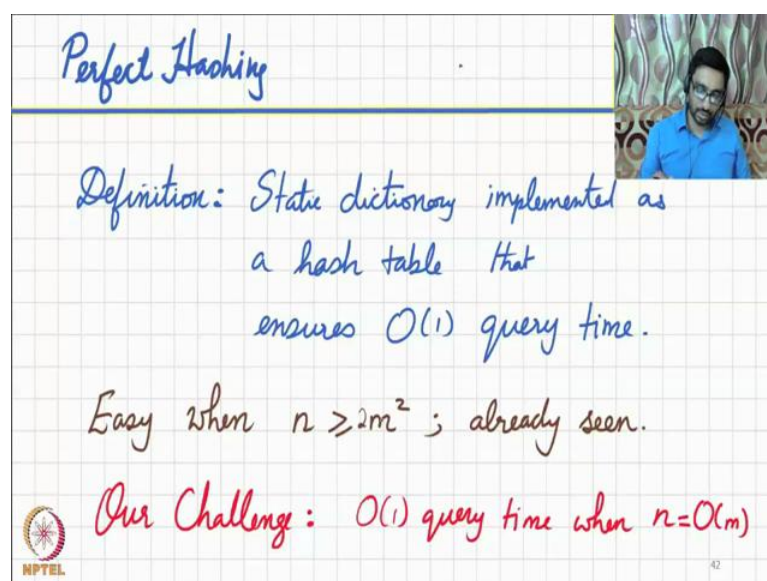 Perfect Hashing
Definition: Static dictionary implemented as
a hash table that
ensures O(1) query time.
Easy when n ≥ 2m² ; already seen.
Our Challenge: O(1) query time when n=O(m)
NPTEL
42